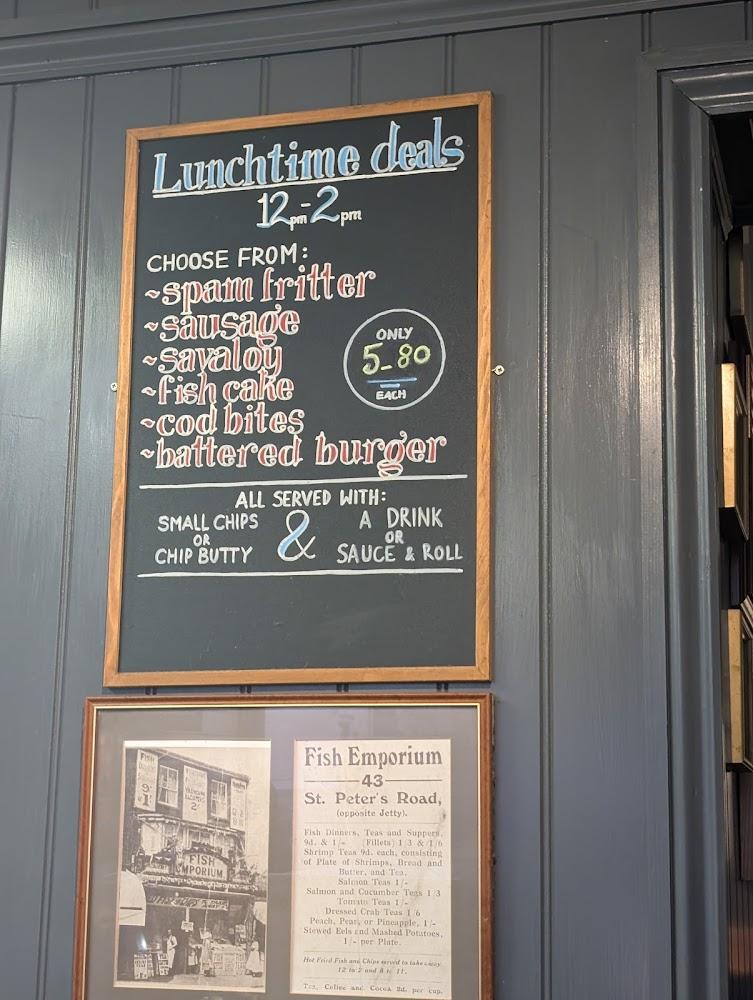 Lunchtime deals
12pm-2pm
CHOOSE FROM:
~spam fritter
~sausage
~savaloy
~fish cake
~cod bites
~battered burger
ONLY
5-80
EACH
ALL SERVED WITH:
SMALL CHIPS
OR
CHIP BUTTY
&
A DRINK
OR
SAUCE & ROLL
FISH
EMPORIUM
Fish Emporium
43
St. Peter's Road,
(opposite Jetty).
Fish Dinners, Teas and Suppers,
9d. & 1/- (Fillets) 1/3 & 1/6
Shrimp Teas 9d. each, consisting
of Plate of Shrimps, Bread and
Butter, and Tea.
Salmon Teas 1/-
Salmon and Cucumber Teas 1/3
Tomato Teas 1/-
Dressed Crab Teas 1/6
Peach, Pear, or Pineapple, 1/-
Stewed Eels and Mashed Potatoes,
1/- per Plate.
Hot Fried Fish and Chips served to take away
12 to 2 and 8 to 11.
Tea, Coffee and Cocoa 2d. per cup.